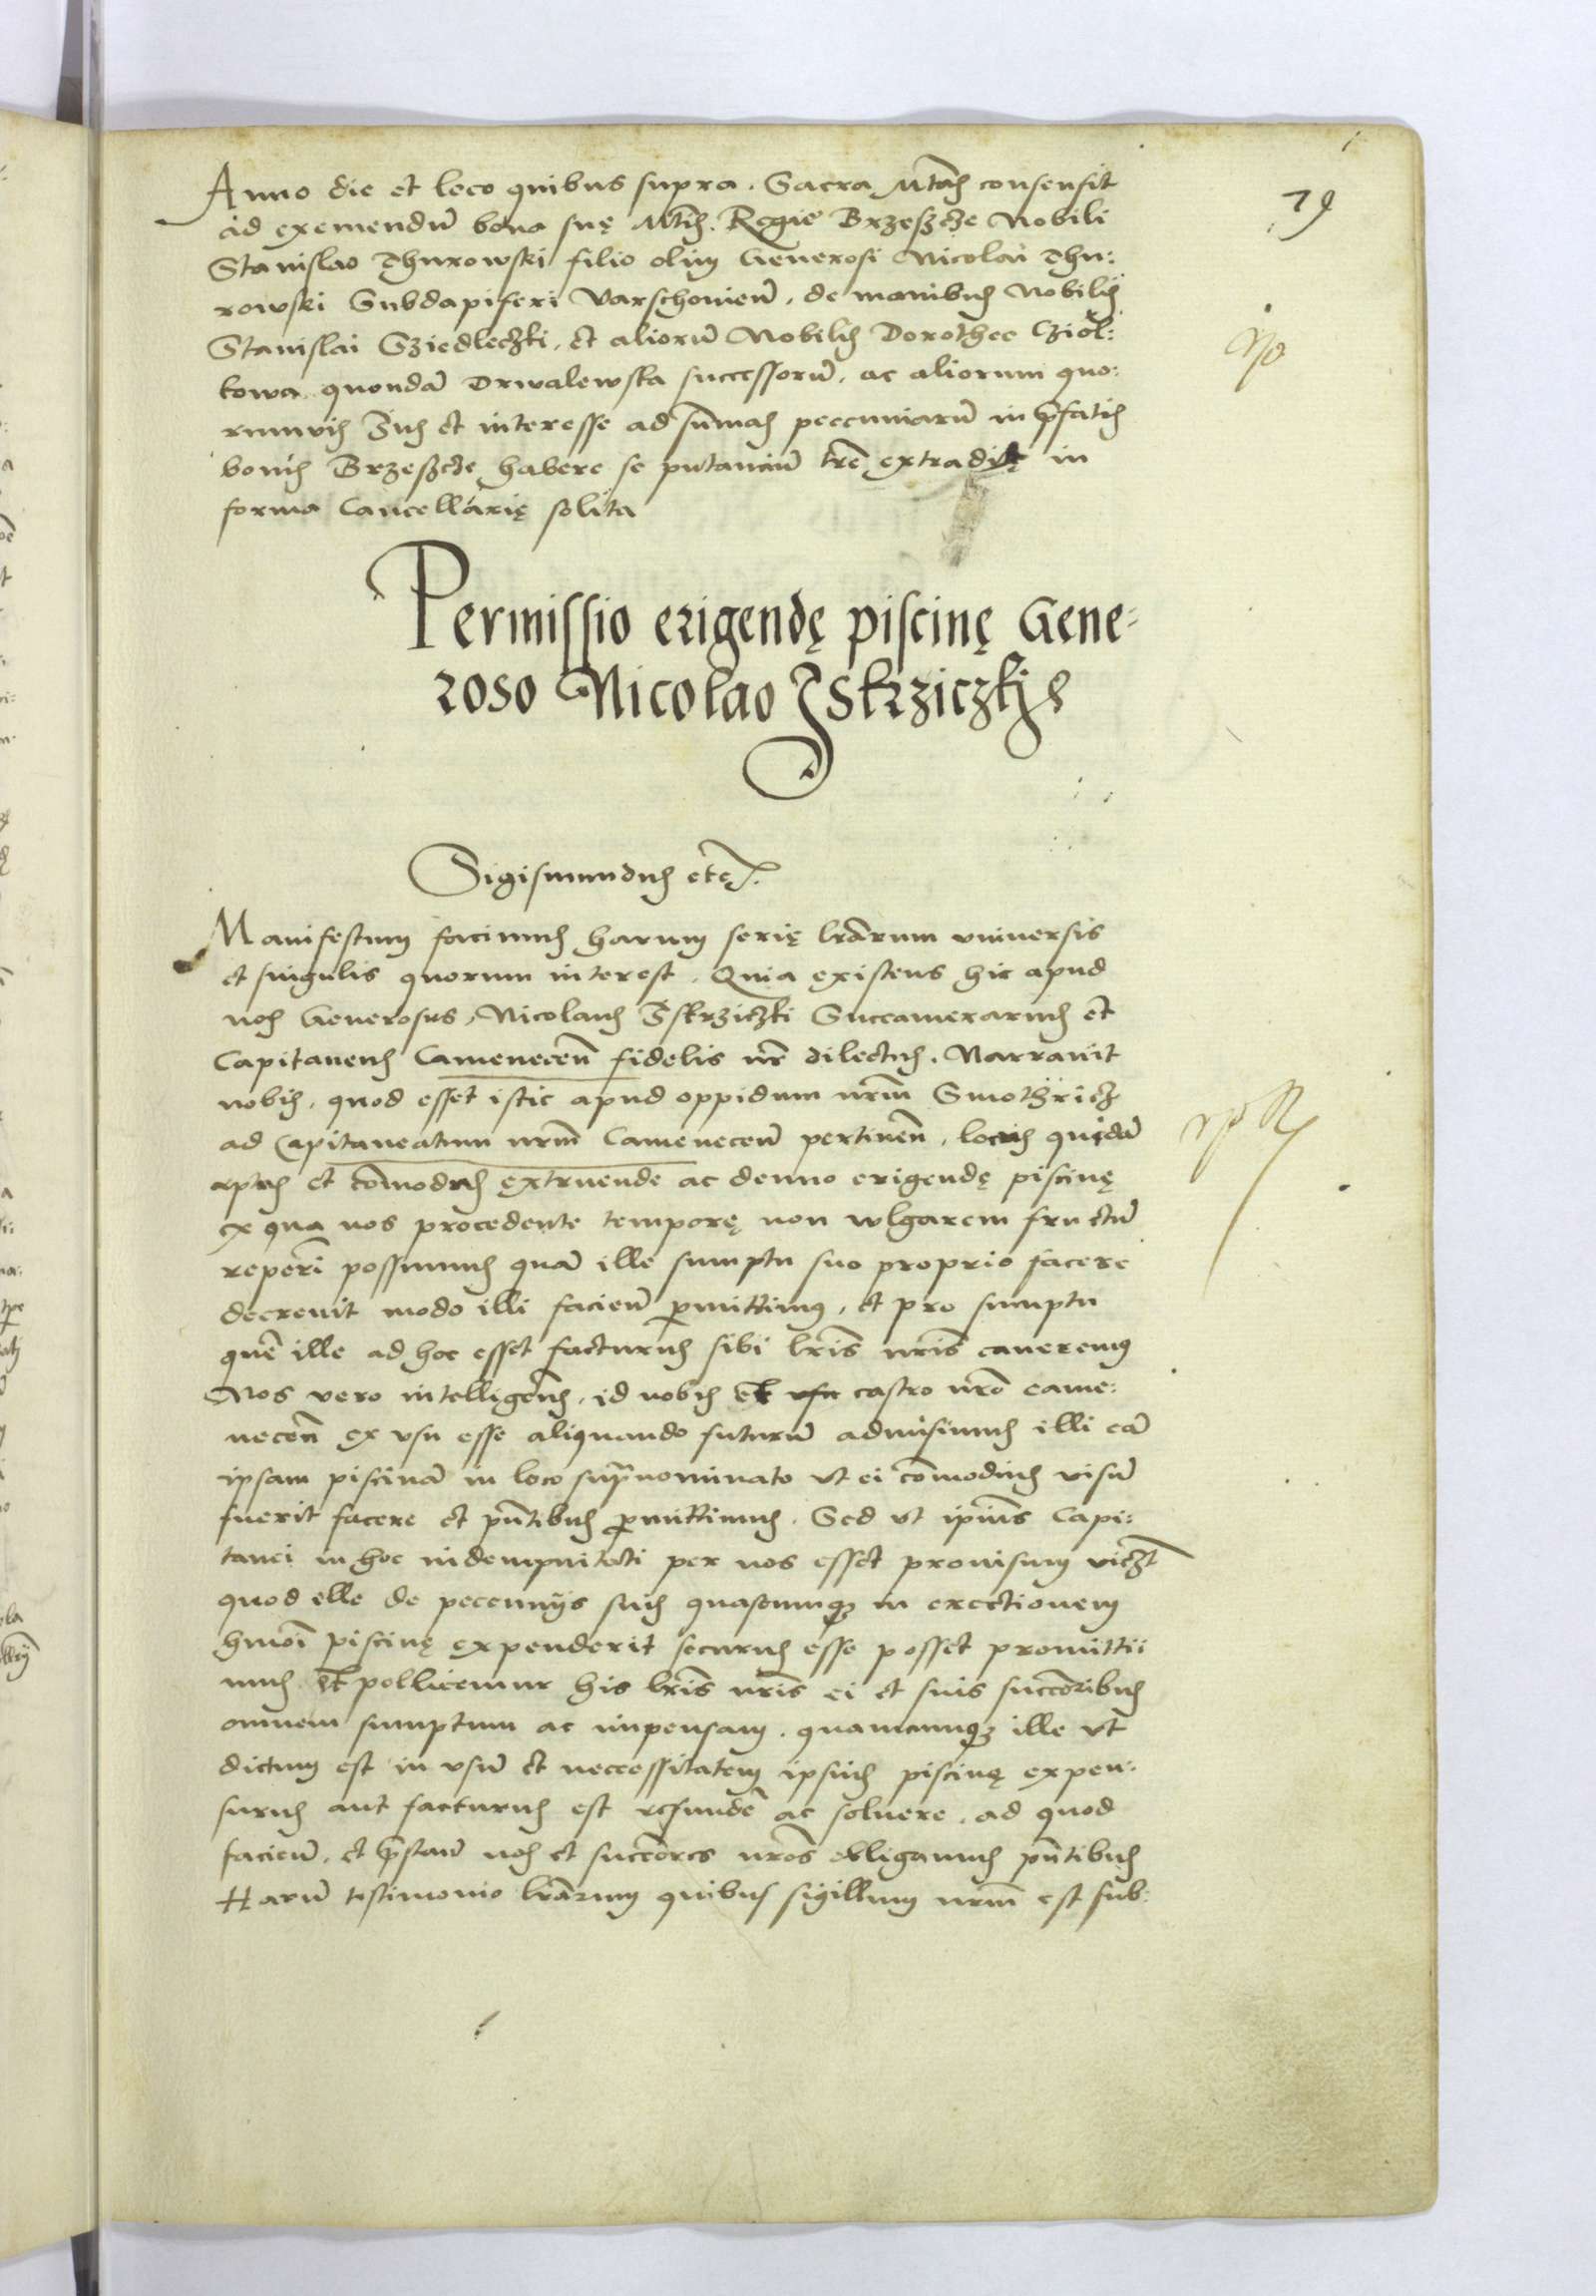 79
Anno die et loco quibus supra. Sacra Mtas consensit
ad exemendū bona suę Mtis Regie Brzeszcże Nobili
Stanislao Thurowski filio olim Generosi Nicolai Thu:
rowski Subdapiferi Varschovien̄. de manibus Nobilis
Stanislai Sziedleczki. et aliorū Nobilis Dorothee Cziol:
kowa quondā Drwalewska successorū. ac aliorum quo:
rumvis Jus et interesse ad sum̄as peccuniarū in p̄fatis
bonis Brzesżcże habere se putanciū lrē extraditę in
forma Cancellarię solita
Permissio erigendę piscinę Gene-
roso Nicolao Iskrziczkj
Sigismundus etc.
Manifestum facimus harum serię lrārum universis
et singulis quorum interest. Quia existens hic apud
nos Generosus Nicolaus Iskrziczki Succamerarius et
Capitaneus Camenecen̄ fidelis nr̄ dilectus. Narravit
nobis. quod esset istic apud oppidum nrm̄ Smothricz
ad Capitaneatum nrm̄ Camenecen̄ pertinen̄. locus quidā
aptus et com̄odus extruende ac denuo erigendę piscinę
ex qua nos procedente temporę non wlgarem fructū
reperi possumus quā ille sumptu suo proprio facere
decrevit modo illi facien̄ p̱mittimus. et pro sumptu
quē ille ad hoc esset facturus sibi lr̄is nr̄is caveremus
Nos vero intelligen̄s. id nobis et usu castro nrō came:
necen̄ ex usu esse aliquando futurū admisimus illi eā
ipsam piscinā in loco sup̄nominato ut ei com̄odius visū
fuerit facere et pn̄tibus p̱mittimus. Sed ut ipīus Capi:
tanei in hoc indempnitati per nos esset provisum viczt
quod elle de pecunijs suis quascumqȝ in erectionem
hmōi piscinę expenderit securus esse posset promittii
mus et pollicemur his lr̄is nr̄is ei et suis succōribus
omnem sumptum ac impensam. quamcumqȝ ille ut
dictum est in usū et necessitatem ipsius piscinę expen:
surus aut facturus est refundē ac solvere. ad quod
facien̄. et p̄stan̄ nos et succōres nrōs obligamus pn̄tibus
Harū testimonio lrārum quibus sigillum nrm̄ est sub: